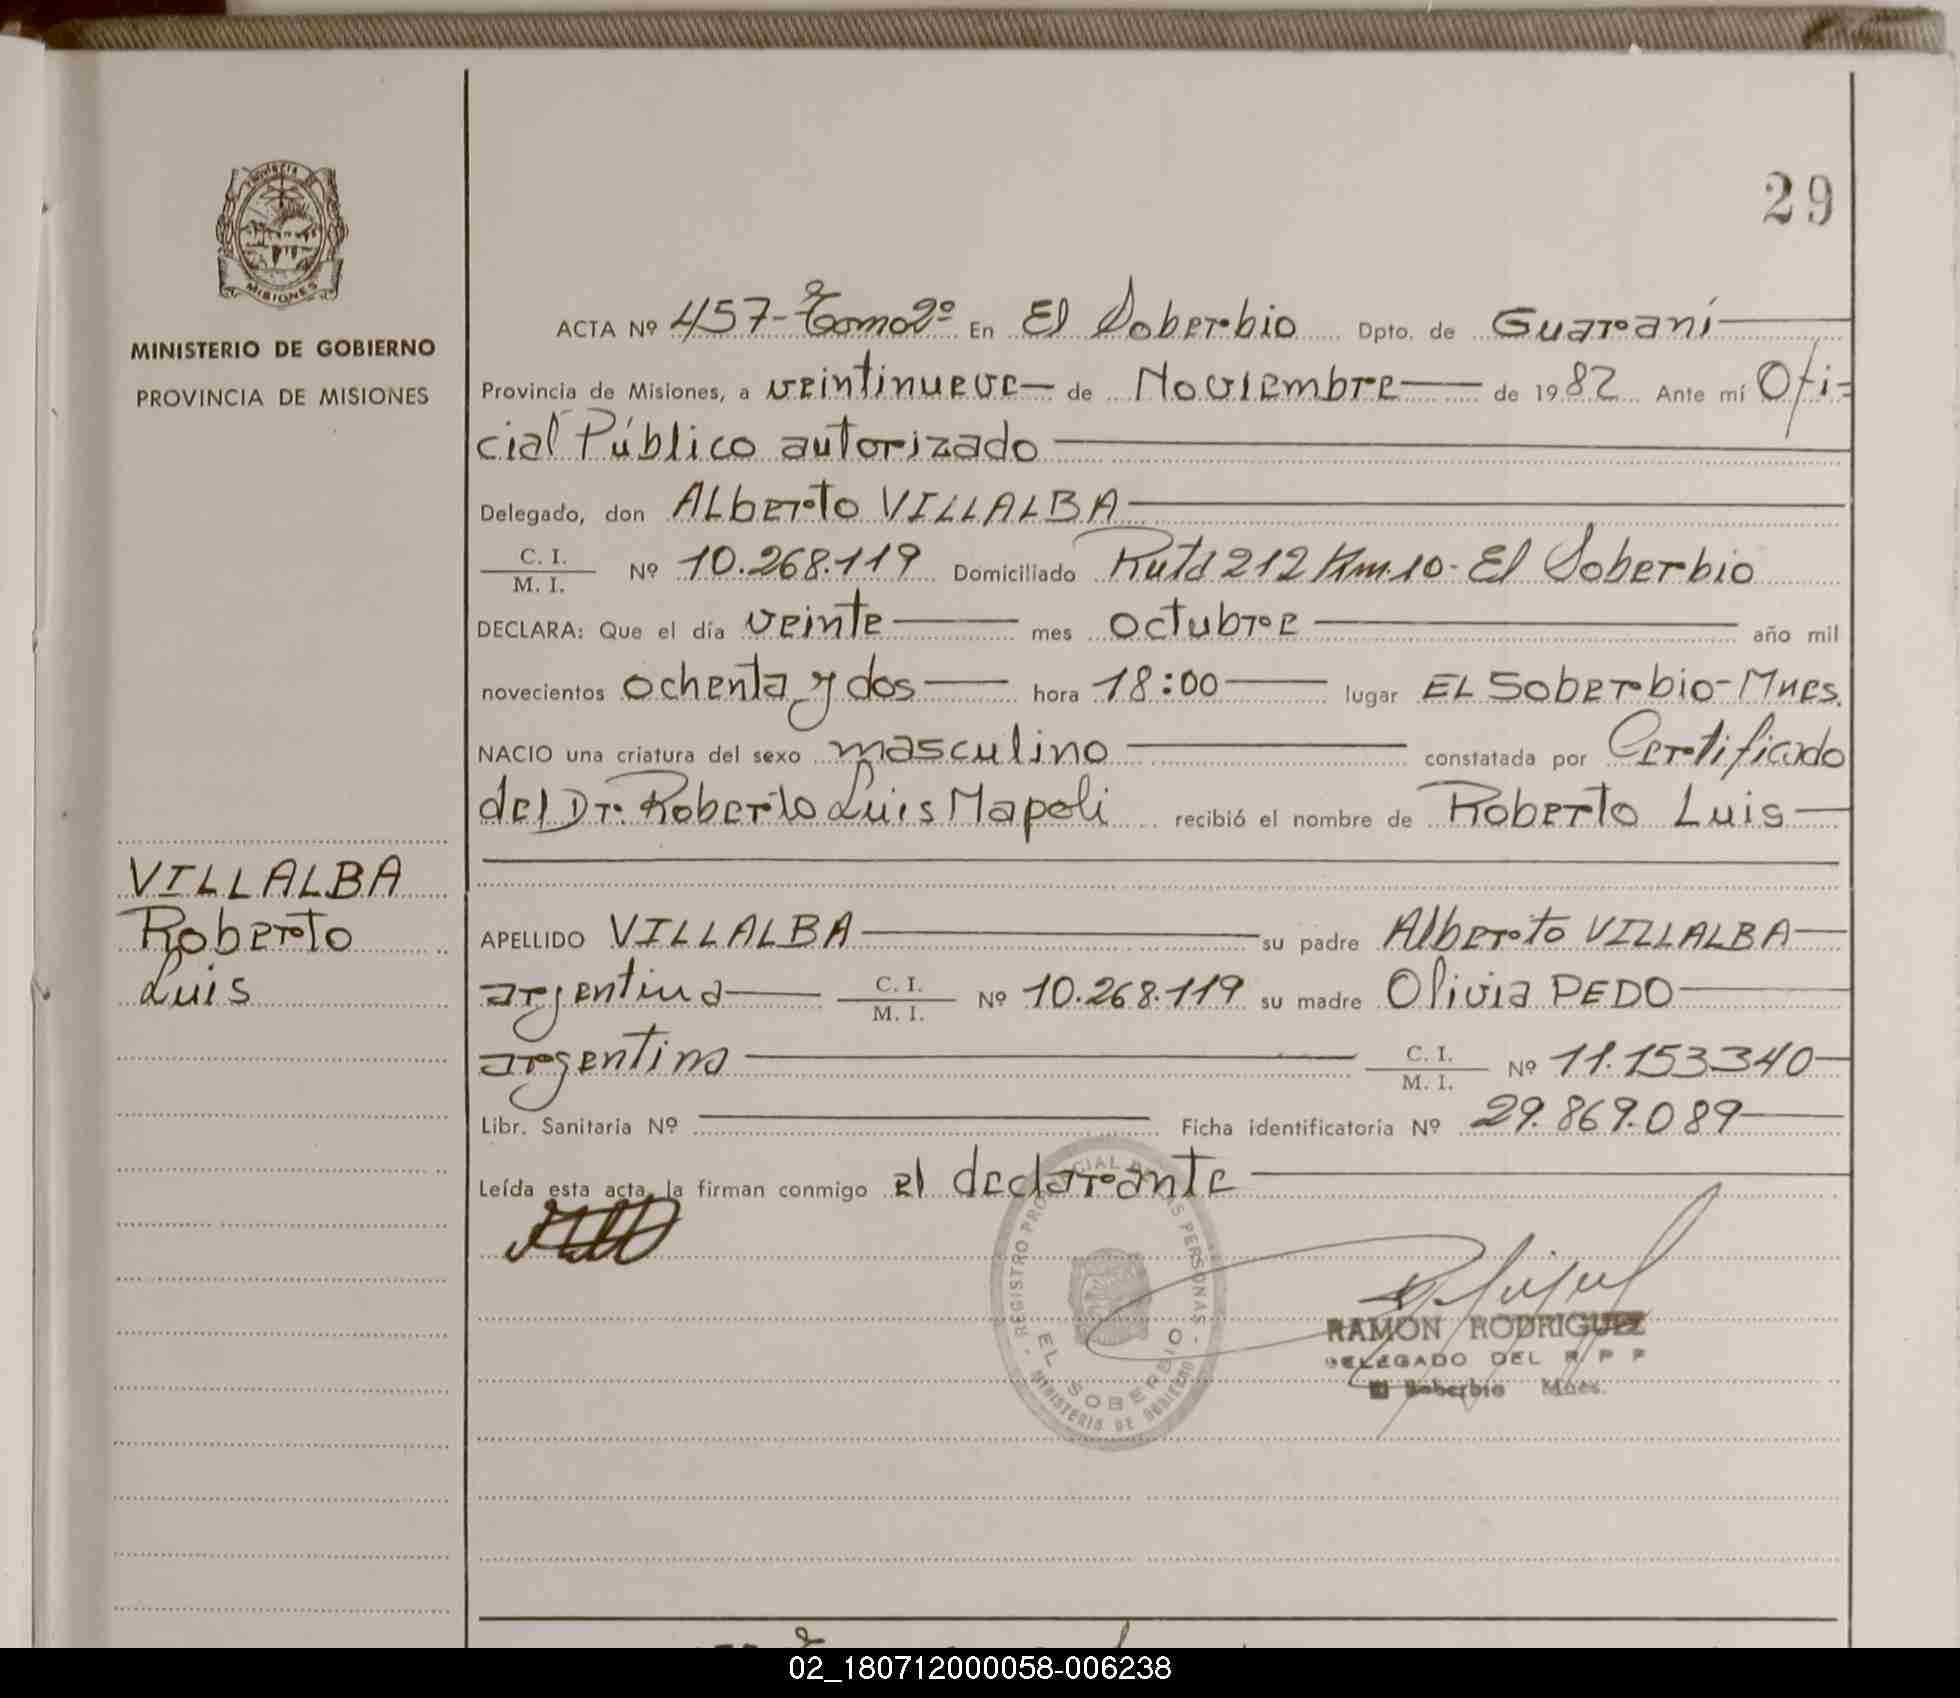 29
PROVINCIA
MISIONES
MINISTERIO DE GOBIERNO
PROVINCIA DE MISIONES
VILLALBA
Roberto
Luis
ACTA Nº 457-Tomo 2º En El Soberbio Dpto. de Guaraní
Provincia de Misiones, a veintinueve de Noviembre de 1982 Ante mí Ofi-
cial Público autorizado
Delegado, don Alberto VILLALBA
C. I. / M. I. Nº 10.268.119 Domiciliado Ruta 212 Km.10- El Soberbio
DECLARA: Que el día veinte mes octubre año mil
novecientos ochenta y dos hora 18:00 lugar EL Soberbio-Mnes.
NACIO una criatura del sexo masculino constatada por Certificado
del Dr. Roberto Luis Napoli recibió el nombre de Roberto Luis
APELLIDO VILLALBA su padre Alberto VILLALBA
argentina C. I. / M. I. Nº 10.268.119 su madre Olivia PEDO
argentina C. I. / M. I. Nº 11.153340
Libr. Sanitaria Nº Ficha identificatoria Nº 29.869.089
Leída esta acta, la firman conmigo el declarante
REGISTRO PROVINCIAL DE LAS PERSONAS
EL SOBERBIO
MINISTERIO DE GOBIERNO
RAMON RODRIGUEZ
DELEGADO DEL R P P
El Soberbio Mnes.
02_180712000058-006238